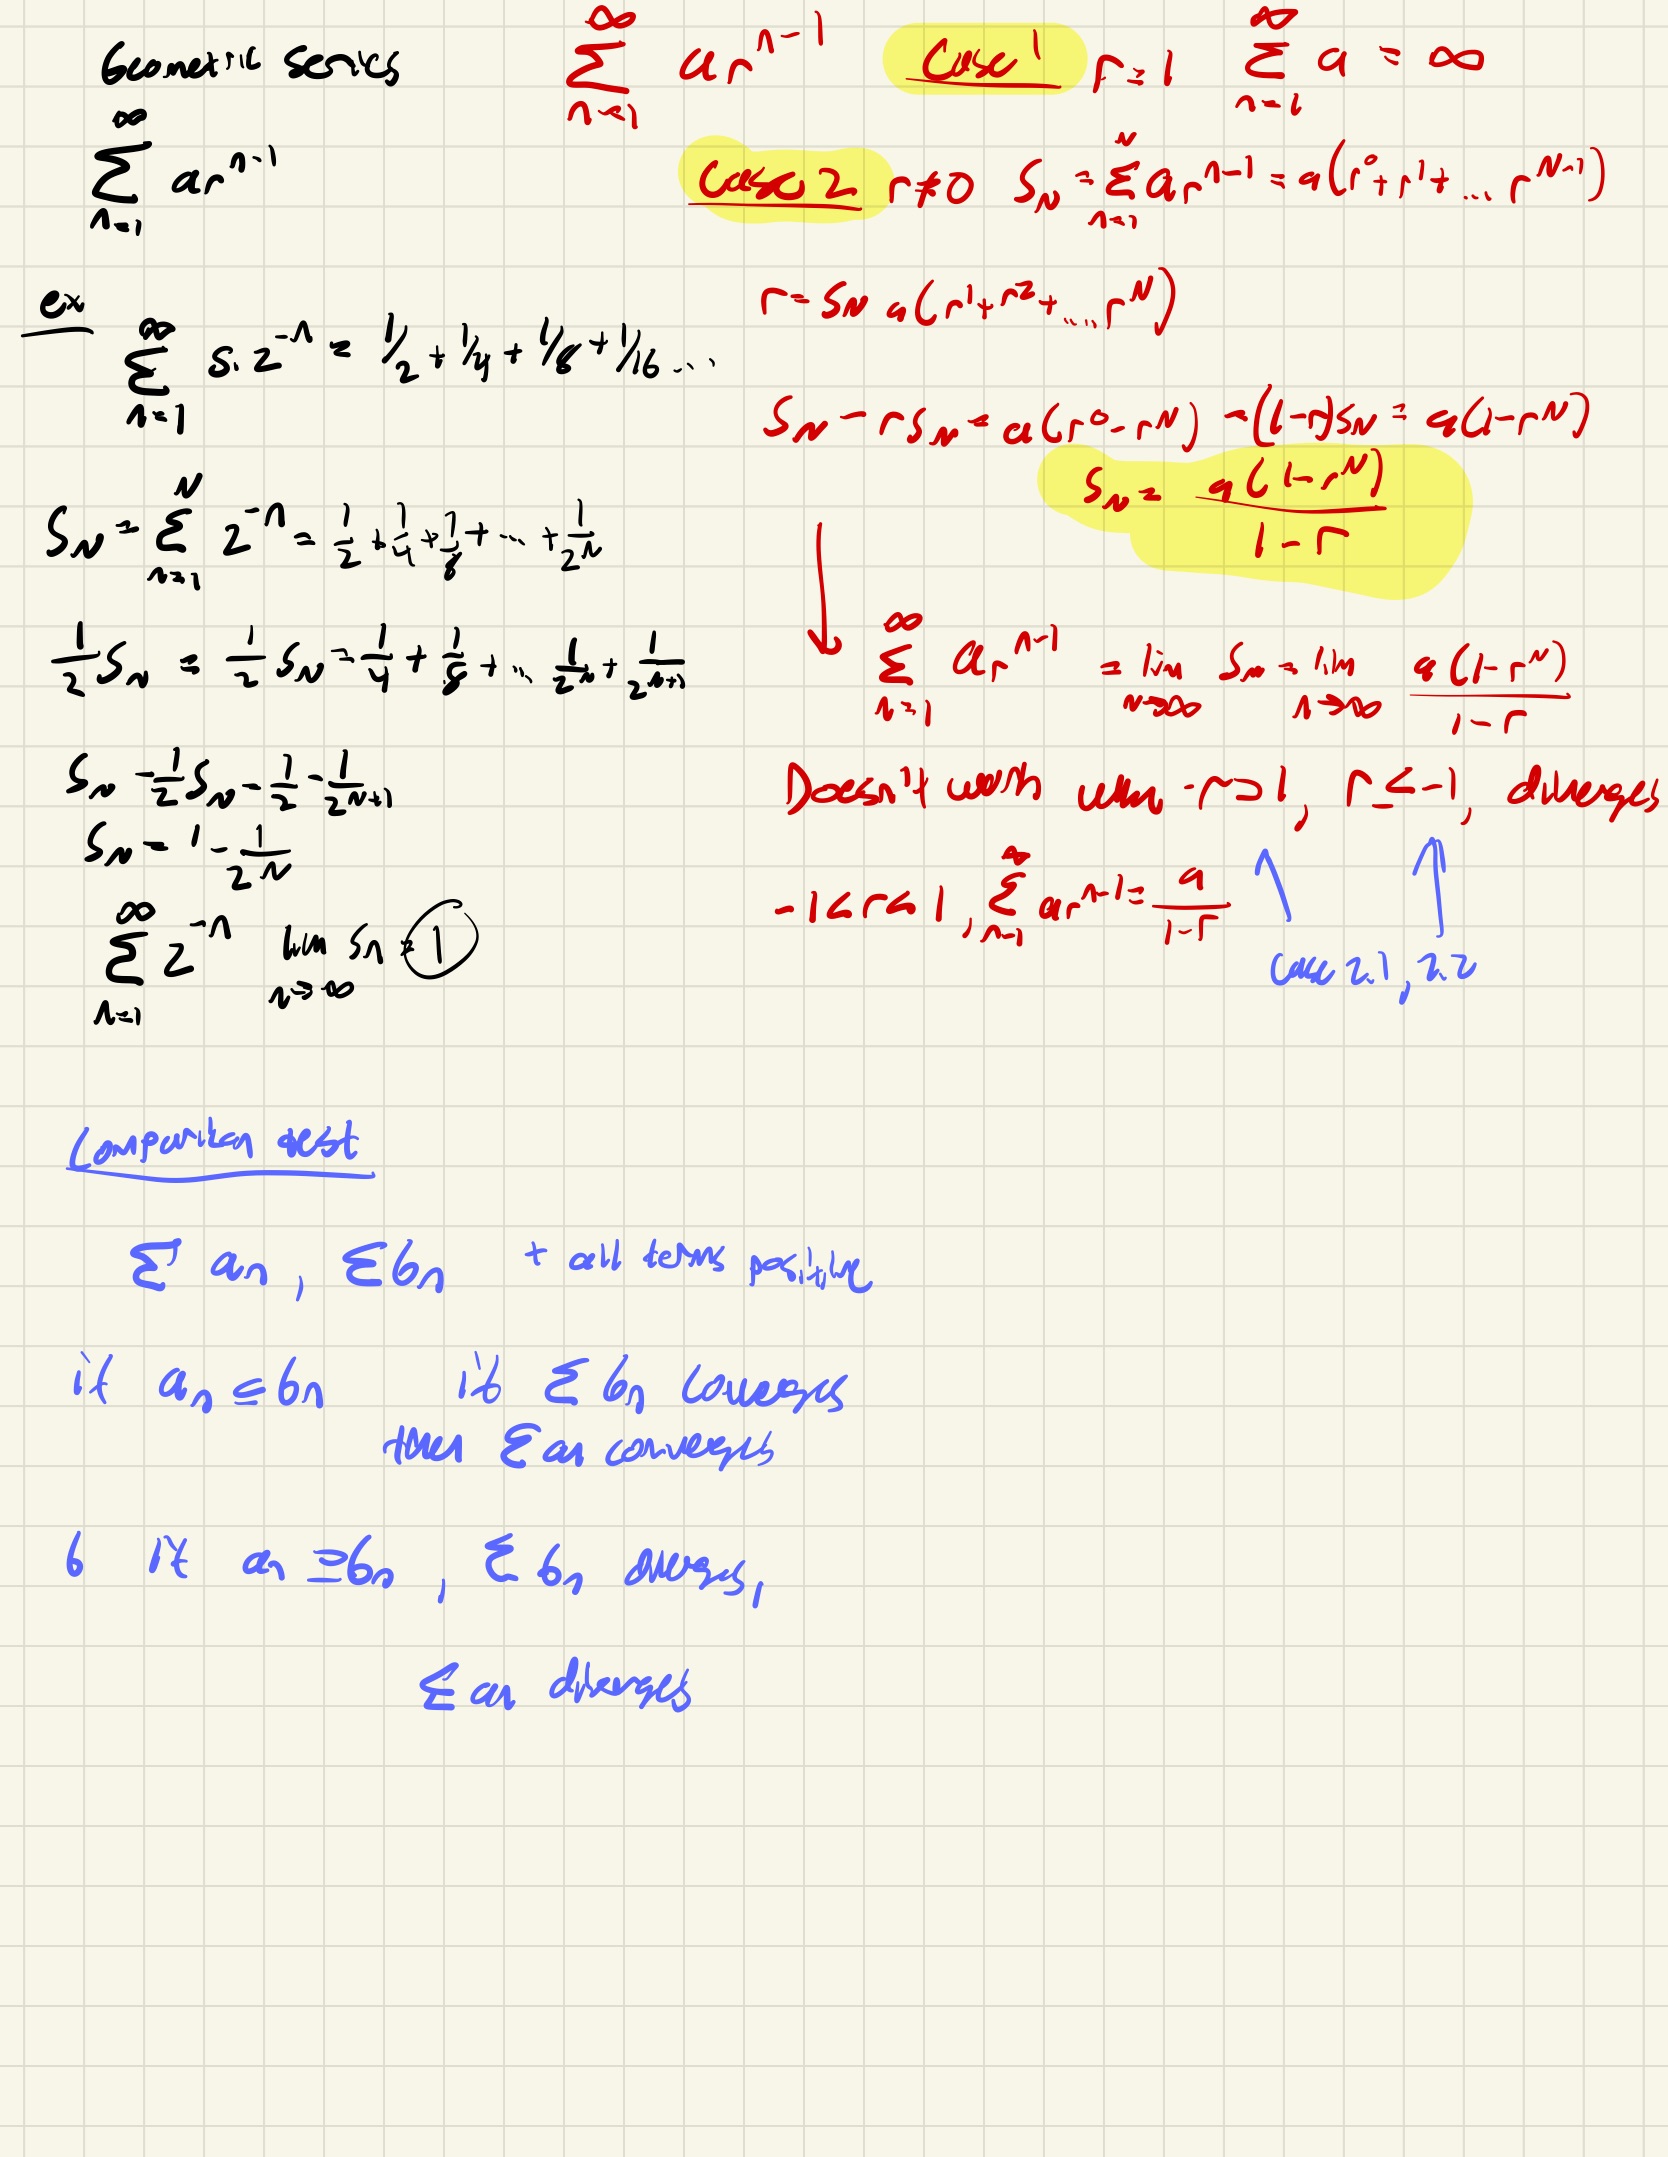 Geometric series
∞
∑ ar^(n-1)
n=1
ex
∞
∑ s. 2^(-n) = 1/2 + 1/4 + 1/8 + 1/16 ...
n=1
S_N = ∑_(n=1)^N 2^(-n) = 1/2 + 1/4 + 1/8 + ... + 1/2^N
1/2 S_N = 1/2 S_N = 1/4 + 1/8 + ... 1/2^N + 1/2^(N+1)
S_N - 1/2 S_N = 1/2 - 1/2^(N+1)
S_N = 1 - 1/2^N
∞
∑ 2^(-n) lim Sn = 1
n=1 n→∞
∑_(n=1)^∞ ar^(n-1) Case 1 r=1 ∑_(n=1)^∞ a = ∞
Case 2 r≠0 S_N = ∑_(n=1)^N ar^(n-1) = a(r^0 + r^1 + ... r^(N-1))
r = S_N a(r^1 + r^2 + .... r^N)
S_N - rS_N = a(r^0 - r^N) = (1-r)S_N = a(1-r^N)
S_N = a(1-r^N)/(1-r)
∑_(n=1)^∞ ar^(n-1) = lim_(N→∞) S_N = lim_(n→∞) a(1-r^N)/(1-r)
Doesn't work when -r>1, r≤-1, diverges
-1<r<1, ∑_(n=1)^∞ ar^(n-1) = a/(1-r)
Case 2.1, 2.2
Comparison test
∑ an, ∑ bn + all terms positive
if an ≤ bn if ∑ bn converges
then ∑ an converges
b if an ≥ bn, ∑ bn diverges,
∑ an diverges